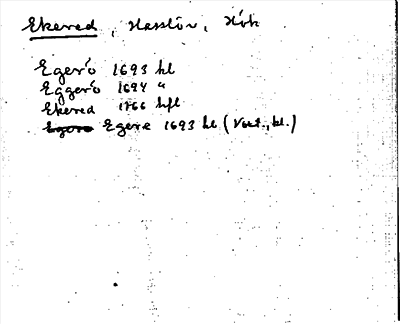 Ekered, Hasslöv, Hök
Egerö 1693 hl
Eggerö 1694 "
Ekered 1766 hfl
Egere 1693 hl (Vbt., kl.)